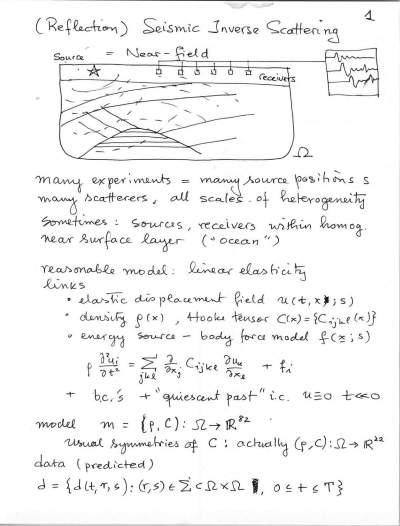 1
(Reflection) Seismic Inverse Scattering
= Near-field
Source
receivers
Ω
many experiments = many source positions s
many scatterers, all scales of heterogeneity
sometimes: sources, receivers within homog.
near surface layer ("ocean")
reasonable model: linear elasticity
links
• elastic displacement field u(t,x;s)
• density ρ(x), Hooke tensor C(x)={Cijkl(x)}
• energy source - body force model f(x;s)
ρ ∂²ui/∂t² = Σjkl ∂/∂xj Cijkl ∂uk/∂xl + fi
+ b.c.'s + "quiescent past" i.c. u≡0 t≪0
model m = {ρ, C}: Ω→ℝ⁸²
Usual symmetries of C: actually (ρ,C): Ω→ℝ²²
data (predicted)
d = {d(t,r,s): (r,s) ∈ Σ ⊂ Ω×Ω, 0 ≤ t ≤ T}